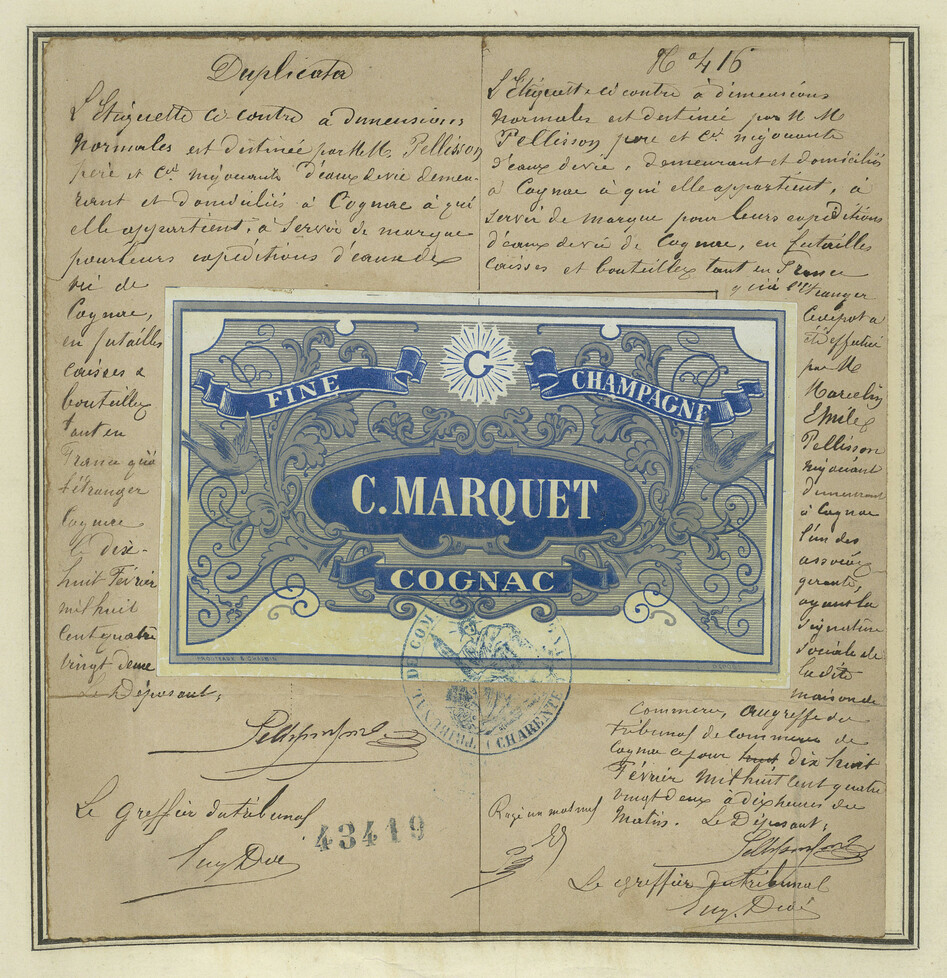 Duplicata
L'Etiquette ci contre à dimensions
normales est destinée par M.M. Pellisson
père et Cie négociants d'eaux de vie demeu-
rant et domiciliés à Cognac à qui
elle appartient, à servir de marque
pour leurs expéditions d'eaux de
vie de
Cognac,
en futailles
caisses &
bouteilles
tant en
France qu'à
l'étranger
Cognac
le dix-
huit Février
mil huit
cent quatre
vingt deux
Le Déposant,
Le greffier du tribunal
43419
No 416
L'Etiquette ci contre à dimensions
normales est destinée par M.M.
Pellisson père et Cie négociants
d'eaux de vie, demeurant et domiciliés
à Cognac à qui elle appartient, à
servir de marque pour leurs expéditions
d'eaux de vie de Cognac, en futailles
caisses et bouteilles tant en France
qu'à l'étranger
Ce dépôt a
été effectué
par M
Marcelin
Emile
Pellisson
négociant
demeurant
à Cognac
l'un des
associés
gérants,
ayant la
signature
sociale de
la dite
maison de
commerce, au greffe du
tribunal de commerce de
Cognac ce jour huit dix huit
Février mil huit cent quatre
vingt deux à dix heures du
matin. Le Déposant,
Rayé un mot nul
Le greffier du tribunal
G
FINE CHAMPAGNE
C. MARQUET
COGNAC
TRIBUNAL DE COM
CHARENTE